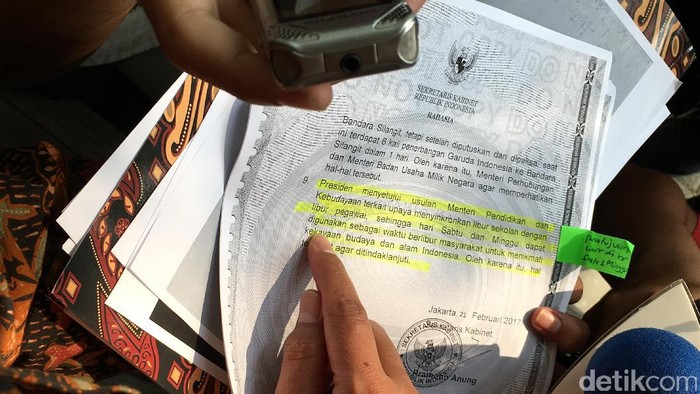 SEKRETARIS KABINET
REPUBLIK INDONESIA
RAHASIA
Bandara Silangit, tetapi setelah diputuskan dan dipaksa, saat
ini terdapat 6 kali penerbangan Garuda Indonesia ke Bandara
Silangit dalam 1 hari. Oleh karena itu, Menteri Perhubungan
dan Menteri Badan Usaha Milik Negara agar memperhatikan
hal-hal tersebut.
9. Presiden menyetujui usulan Menteri Pendidikan dan
Kebudayaan terkait upaya menyinkronkan libur sekolah dengan
libur pegawai, sehingga hari Sabtu dan Minggu dapat
digunakan sebagai waktu berlibur masyarakat untuk menikmati
kekayaan budaya dan alam Indonesia. Oleh karena itu, hal
agar ditindaklanjuti.
Jakarta, Februari 2017
Kabinet,
SEKRETARIS KABINET
REPUBLIK INDONESIA
Pramono Anung
detikcom